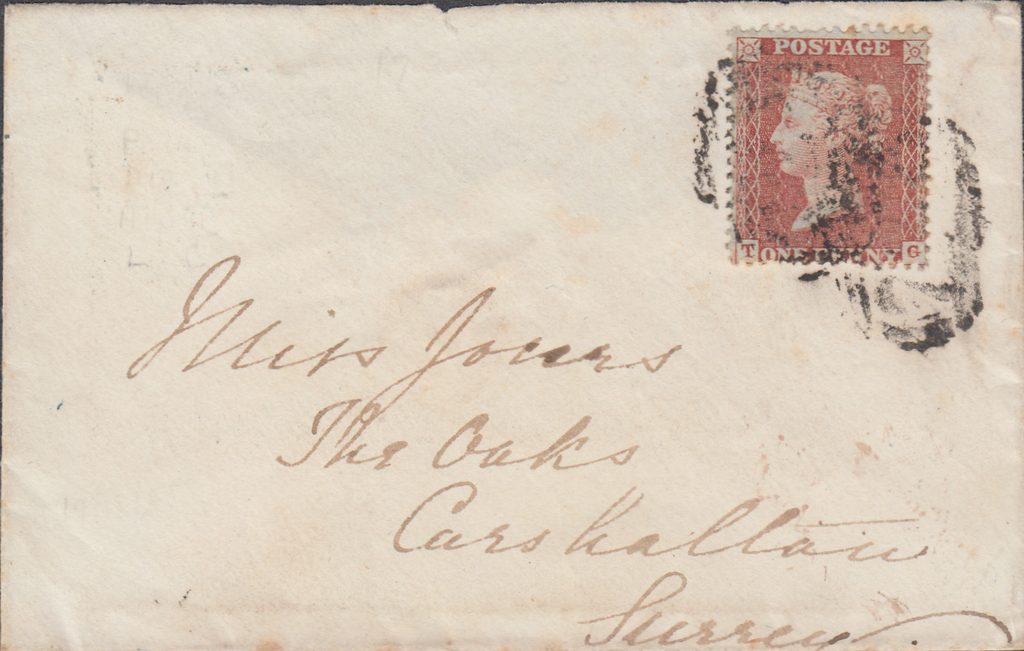 POSTAGE
T ONE PENNY G
Miss Jones
The Oaks
Carshalton
Surrey.